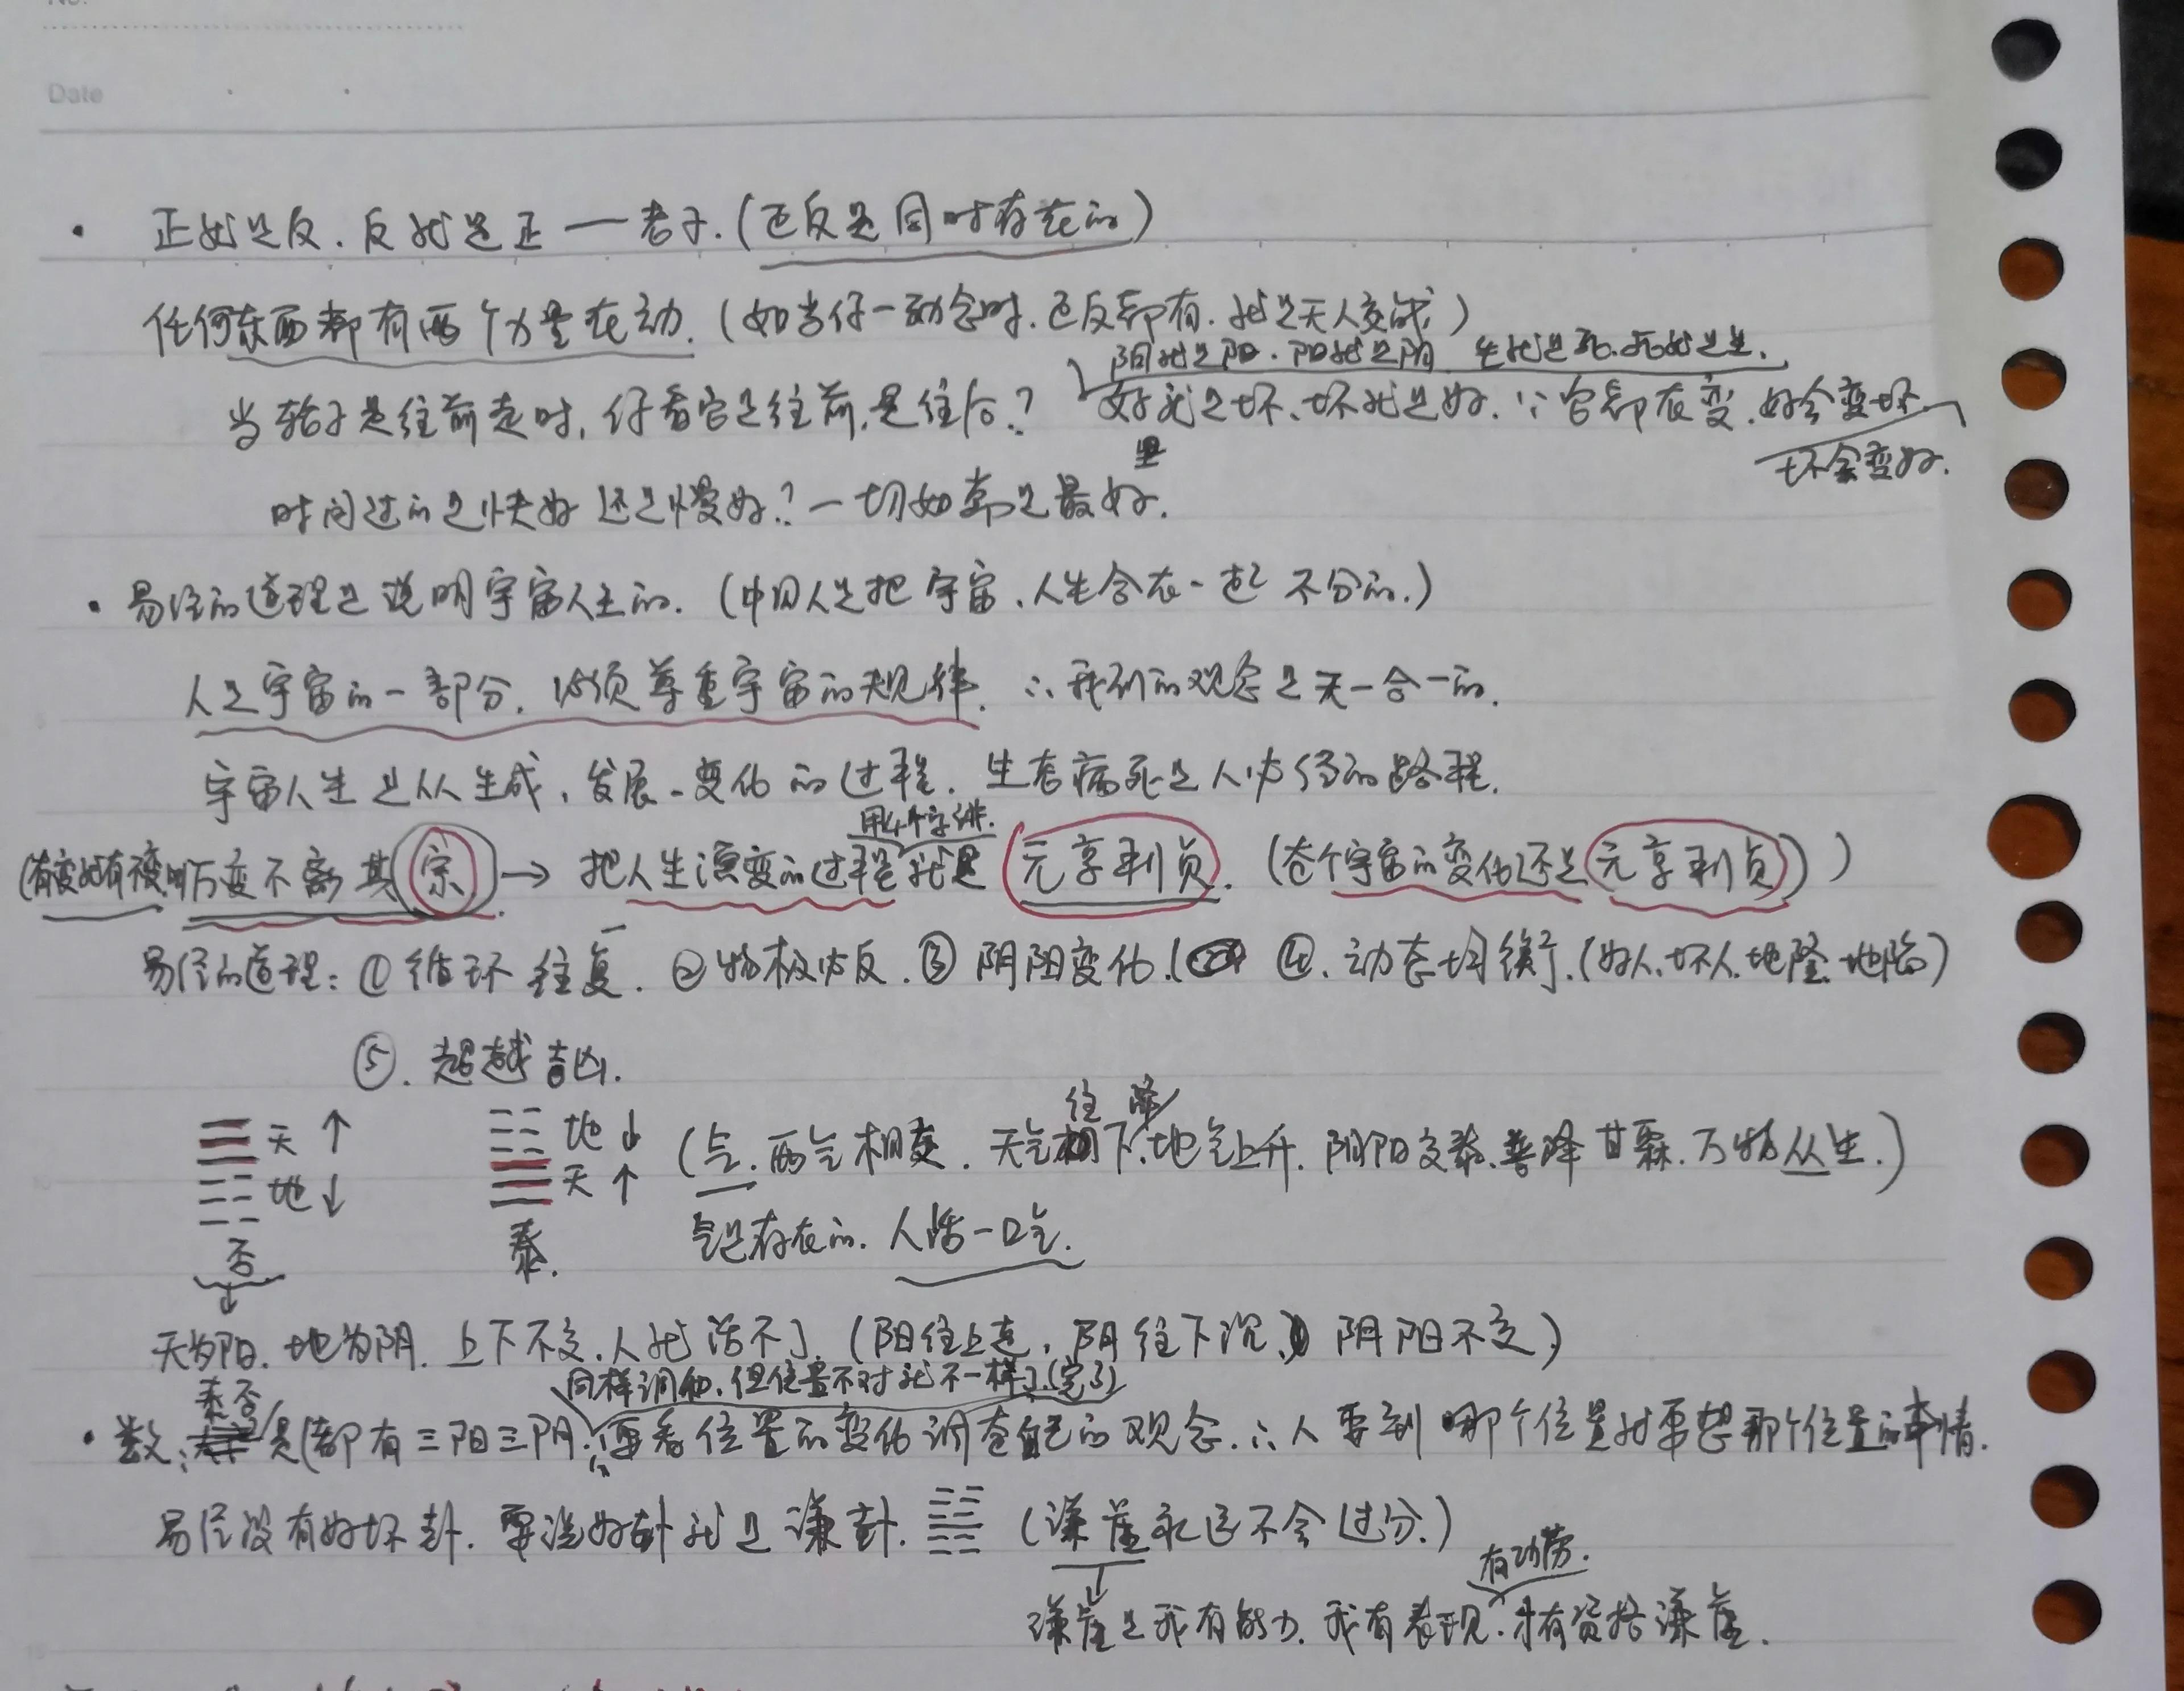 No.
Date
· 正就是反.反就是正—老子.(正反是同时存在的)
任何东西都有两个力量在动.(如当你一动念时.正反都有.就是天人交战)
阴就是阳.阳就是阴 生就是死.死就是生.
当轮子是往前走时,你看它是往前,是往后? 好就是坏、坏就是好.∵它都在变.好会变坏
坏会变好.
时间过的是快好还是慢好?一切如常是最好.
· 易经的道理是说明宇宙人生的.(中国人是把宇宙、人生合在一起不分的.)
人是宇宙的一部分.必须尊重宇宙的规律.∴我们的观念是天一合一的.
宇宙人生是从生成、发展、变化的过程.生老病死是人必经的路程.
用4个字讲.
(有变就有不变,叫万变不离其宗)→把人生演变的过程就是元亨利贞.(整个宇宙的变化还是元亨利贞))
易经的道理:①循环往复.②物极必反.③阴阳变化.( ④.动态均衡.(好人.坏人.地隆.地陷)
⑤.超越吉凶.
往 降
☰天↑ ☷地↓ (气.两气相交.天气下.地气上升.阴阳交泰.普降甘霖.万物从生.)
☷地↓ ☰天↑
否 泰. 气是存在的.人活一口气.
↓
天为阳.地为阴.上下不交.人就活不了.(阳往上走,阴往下沉, 阴阳不交)
同样调和.但位置不对就不一样了.(完了)
泰否
· 数: 是(都有三阳三阴.∴要看位置的变化调查自己的观念.∴人要到哪个位置就要想那个位置的事情.
易经没有好坏卦.要说好卦就是谦卦.䷎(谦虚永远不会过分.)
↓ 有功劳.
谦虚是我有能力.我有表现.才有资格谦虚.